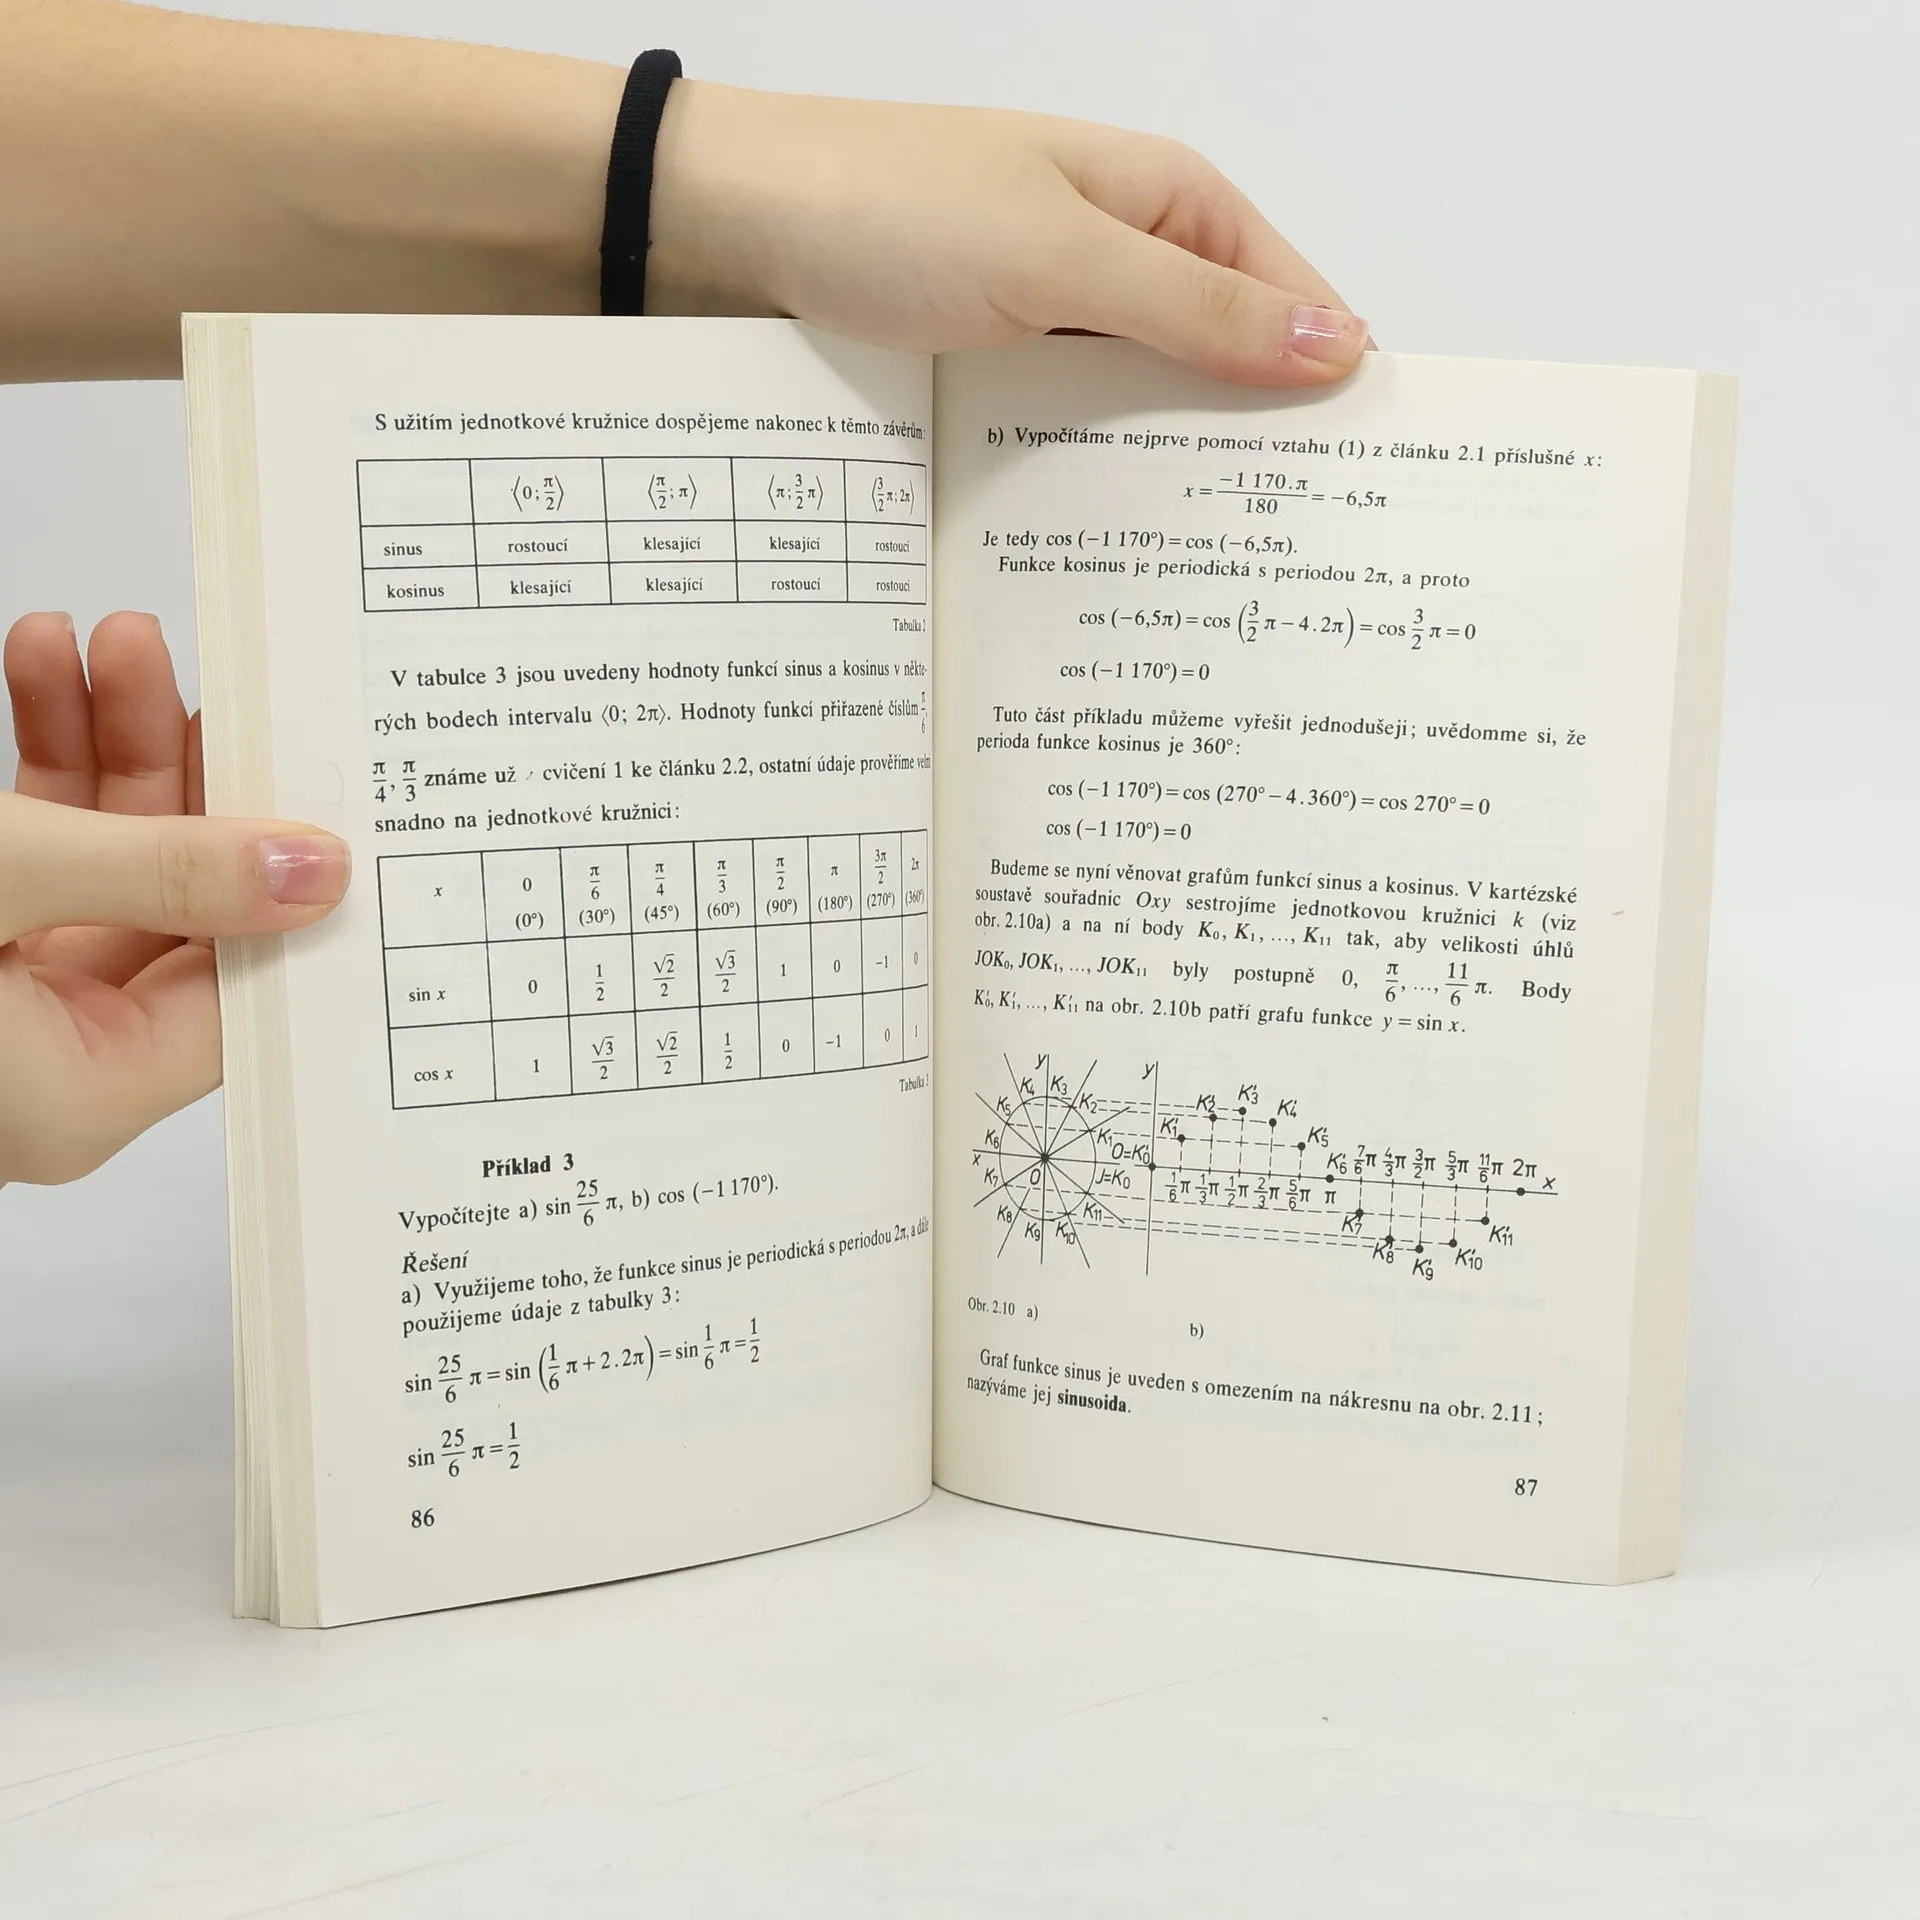 S užitím jednotkové kružnice dospějeme nakonec k těmto závěrům:
⟨0; π/2⟩ ⟨π/2; π⟩ ⟨π; 3/2 π⟩ ⟨3/2 π; 2π⟩
sinus rostoucí klesající klesající rostoucí
kosinus klesající klesající rostoucí rostoucí
Tabulka 2
V tabulce 3 jsou uvedeny hodnoty funkcí sinus a kosinus v někte-
rých bodech intervalu ⟨0; 2π⟩. Hodnoty funkcí přiřazené číslům π/6,
π/4, π/3 známe už cvičení 1 ke článku 2.2, ostatní údaje prověříme velmi
snadno na jednotkové kružnici:
x 0 (0°) π/6 (30°) π/4 (45°) π/3 (60°) π/2 (90°) π (180°) 3π/2 (270°) 2π (360°)
sin x 0 1/2 √2/2 √3/2 1 0 −1 0
cos x 1 √3/2 √2/2 1/2 0 −1 0 1
Tabulka 3
Příklad 3
Vypočítejte a) sin 25/6 π, b) cos (−1 170°).
Řešení
a) Využijeme toho, že funkce sinus je periodická s periodou 2π, a dále
použijeme údaje z tabulky 3:
sin 25/6 π = sin (1/6 π + 2 . 2π) = sin 1/6 π = 1/2
sin 25/6 π = 1/2
86
b) Vypočítáme nejprve pomocí vztahu (1) z článku 2.1 příslušné x:
x = −1 170 . π/180 = −6,5π
Je tedy cos (−1 170°) = cos (−6,5π).
Funkce kosinus je periodická s periodou 2π, a proto
cos (−6,5π) = cos (3/2 π − 4 . 2π) = cos 3/2 π = 0
cos (−1 170°) = 0
Tuto část příkladu můžeme vyřešit jednodušeji; uvědomme si, že
perioda funkce kosinus je 360°:
cos (−1 170°) = cos (270° − 4 . 360°) = cos 270° = 0
cos (−1 170°) = 0
Budeme se nyní věnovat grafům funkcí sinus a kosinus. V kartézské
soustavě souřadnic Oxy sestrojíme jednotkovou kružnici k (viz
obr. 2.10a) a na ní body K₀, K₁, ..., K₁₁ tak, aby velikosti úhlů
JOK₀, JOK₁, ..., JOK₁₁ byly postupně 0, π/6, ..., 11/6 π. Body
K′₀, K′₁, ..., K′₁₁ na obr. 2.10b patří grafu funkce y = sin x.
y K₄ K₃ K₅ K₂ K₆ K₁ x K₇ O J=K₀ K₈ K₁₁ K₉ K₁₀
y K′₁ K′₂ K′₃ K′₄ K′₅ O=K′₀ K′₆ 7/6π 4/3π 3/2π 5/3π 11/6π 2π x
1/6π 1/3π 1/2π 2/3π 5/6π π
K′₇ K′₈ K′₉ K′₁₀ K′₁₁
Obr. 2.10 a)
b)
Graf funkce sinus je uveden s omezením na nákresnu na obr. 2.11;
nazýváme jej sinusoida.
87